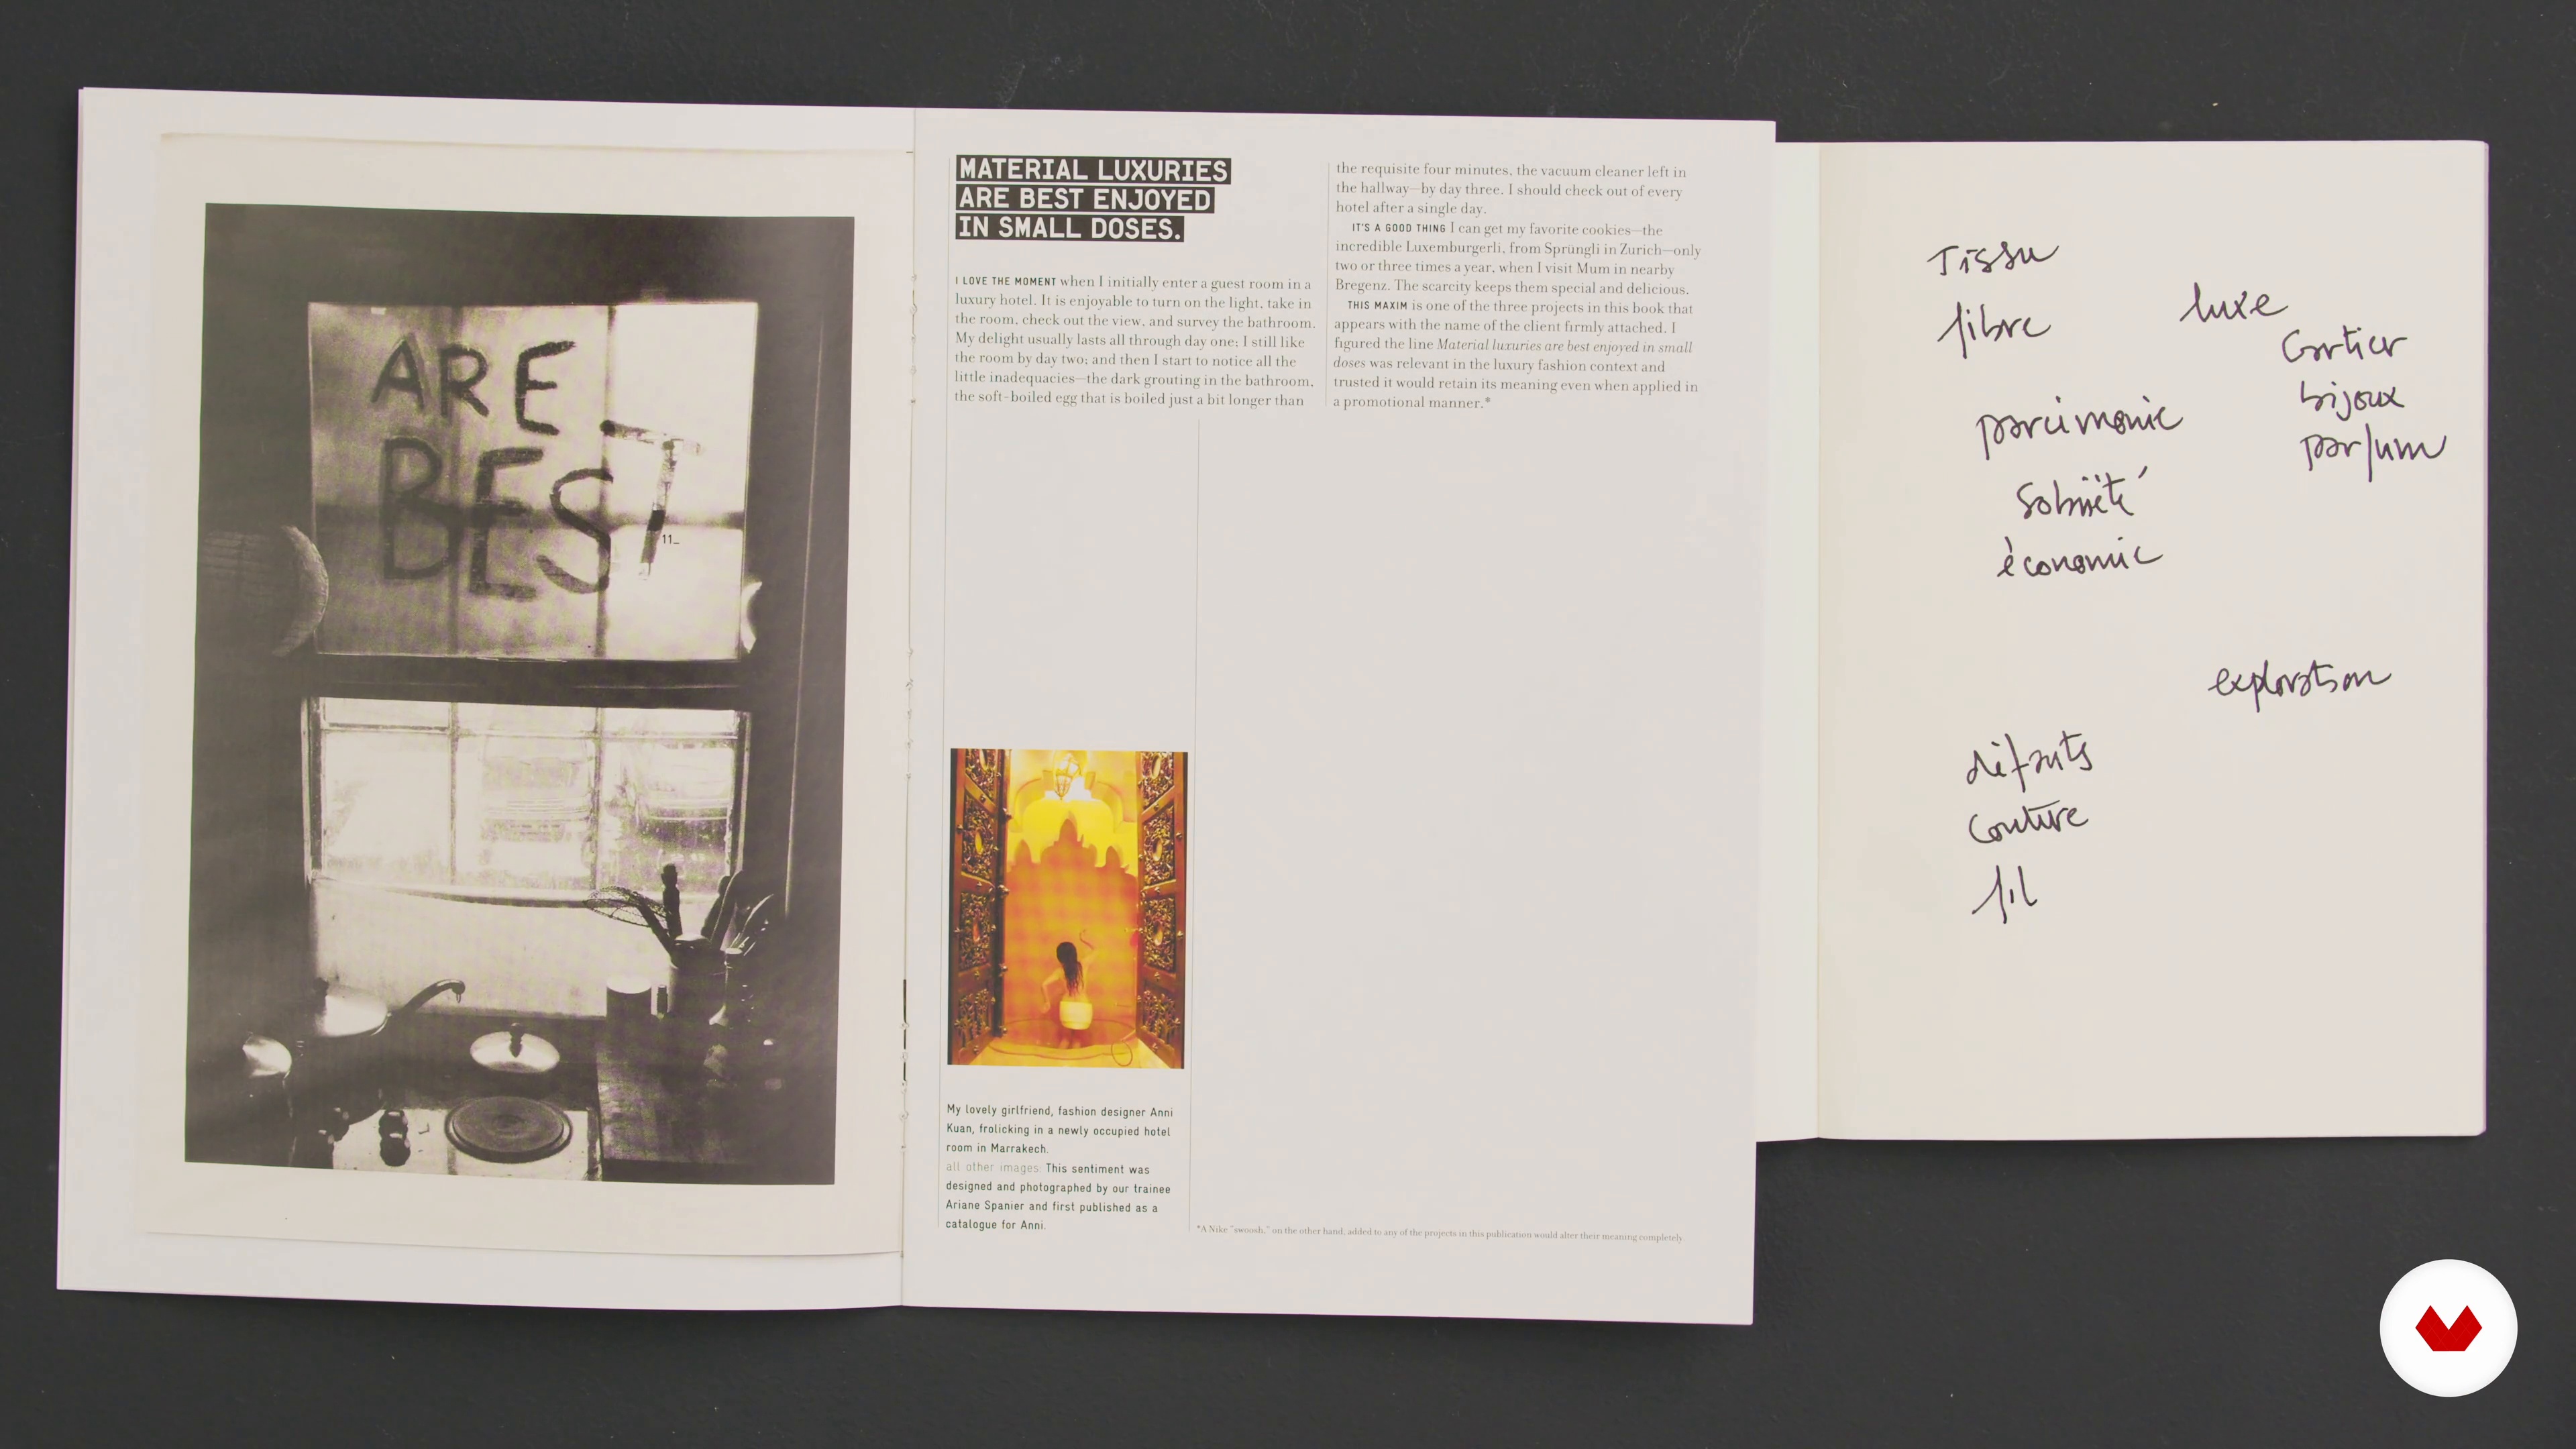 ARE
BEST
11_
MATERIAL LUXURIES
ARE BEST ENJOYED
IN SMALL DOSES.
I LOVE THE MOMENT when I initially enter a guest room in a
luxury hotel. It is enjoyable to turn on the light, take in
the room, check out the view, and survey the bathroom.
My delight usually lasts all through day one; I still like
the room by day two; and then I start to notice all the
little inadequacies—the dark grouting in the bathroom,
the soft-boiled egg that is boiled just a bit longer than
the requisite four minutes, the vacuum cleaner left in
the hallway—by day three. I should check out of every
hotel after a single day.
IT'S A GOOD THING I can get my favorite cookies—the
incredible Luxemburgerli, from Sprüngli in Zurich—only
two or three times a year, when I visit Mum in nearby
Bregenz. The scarcity keeps them special and delicious.
THIS MAXIM is one of the three projects in this book that
appears with the name of the client firmly attached. I
figured the line Material luxuries are best enjoyed in small
doses was relevant in the luxury fashion context and
trusted it would retain its meaning even when applied in
a promotional manner.*
My lovely girlfriend, fashion designer Anni
Kuan, frolicking in a newly occupied hotel
room in Marrakech.
all other images: This sentiment was
designed and photographed by our trainee
Ariane Spanier and first published as a
catalogue for Anni.
*A Nike "swoosh," on the other hand, added to any of the projects in this publication would alter their meaning completely
Tissu
fibre
luxe
Cartier
bijoux
parfum
parcimonie
Sobriété
économie
exploration
défauts
Couture
fil